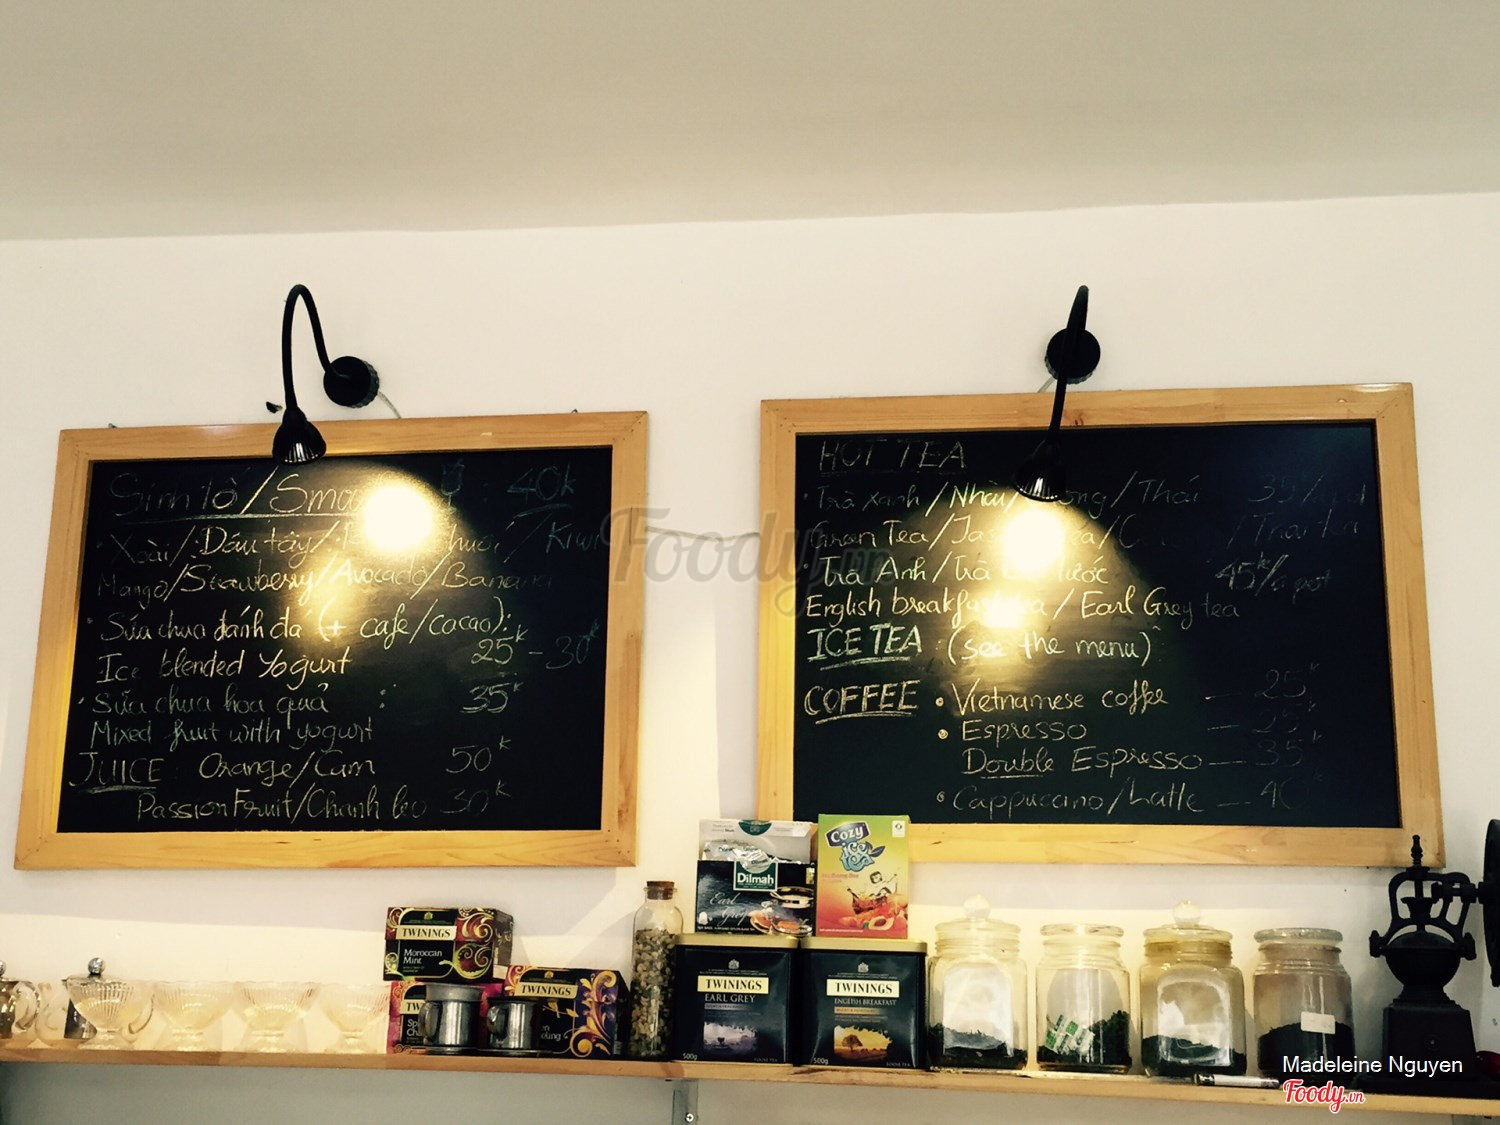 Sinh tố / Smoo : 40k
Xoài / Dâu tây / huối / Kiwi
Mango / Strawberry / Avocado / Banana
Sữa chua đánh đá (+ cafe/cacao):
Ice blended Yogurt 25k - 30k
Sữa chua hoa quả : 35k
Mixed fruit with yogurt
JUICE : Orange/Cam 50k
Passion Fruit/Chanh leo 30k
HOT TEA
Trà xanh / Nhài / / Thái 35/
Green Tea / Ja / Thai
Trà Anh / Trà 45k/a pot
English breakfast tea / Earl Grey tea
ICE TEA : (see the menu)
COFFEE • Vietnamese coffee — 25k
• Espresso — 25k
Double Espresso — 35k
• Cappuccino / Latte — 40k
Foody.vn
Dilmah
Earl Grey
Cozy
ice tea
TWININGS
Moroccan Mint
TWININGS
TWININGS
EARL GREY
500g
TWININGS
ENGLISH BREAKFAST
500g
Madeleine Nguyen
Foody.vn